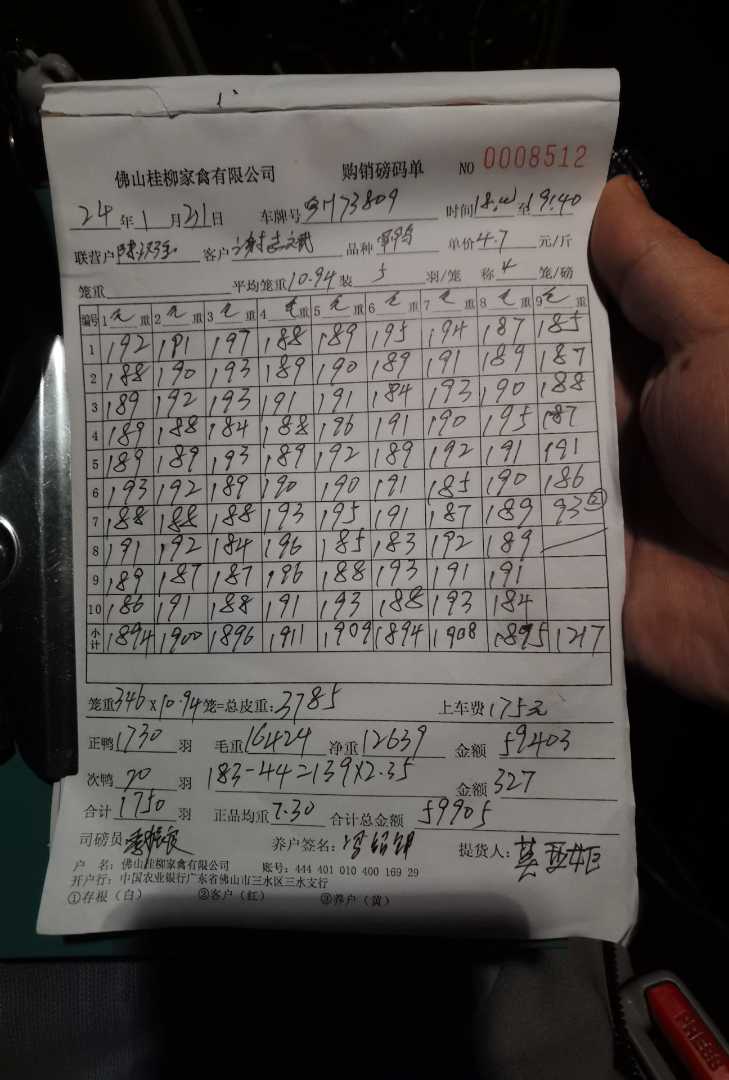 佛山桂柳家禽有限公司 购销磅码单 NO 0008512
24年1月21日 车牌号 73809 时间18:00至19:40
联营户 客户 品种 单价4.7元/斤
笼重 平均笼重10.94装5羽/笼 称4笼/磅
编号 1毛重 2毛重 3毛重 4毛重 5毛重 6毛重 7毛重 8毛重 9毛重
1 192 181 197 188 189 195 194 187 185
2 188 190 193 189 190 189 191 189 187
3 189 192 193 191 191 184 193 190 188
4 189 188 184 188 196 191 190 195 187
5 189 189 193 189 192 189 192 191 191
6 193 192 189 190 190 191 185 190 186
7 188 188 188 193 195 191 187 189 93②
8 191 192 184 196 185 183 192 189
9 189 187 187 196 188 193 191 191
10 186 191 188 191 193 188 193 184
小计 1894 1900 1896 1911 1909 1894 1908 1895 1217
笼重346×10.94笼=总皮重:3785 上车费175元
正鸭1730羽 毛重16424净重12639 金额59403
次鸭20羽 183-44=139×2.35 金额327
合计1750羽 正品均重7.30 合计总金额59905
司磅员: 养户签名: 提货人:
户 名:佛山桂柳家禽有限公司 账号:444 401 010 400 169 29
开户行:中国农业银行广东省佛山市三水区三水支行
①存根(白) ②客户(红) ③养户(黄)
PRESS